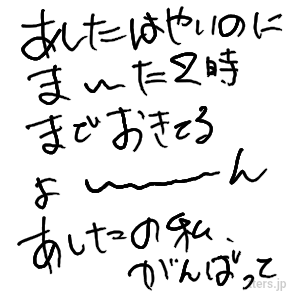 あしたはやいのに
まーた2時
までおきてる
よーーーん
あしたの私、
がんばって